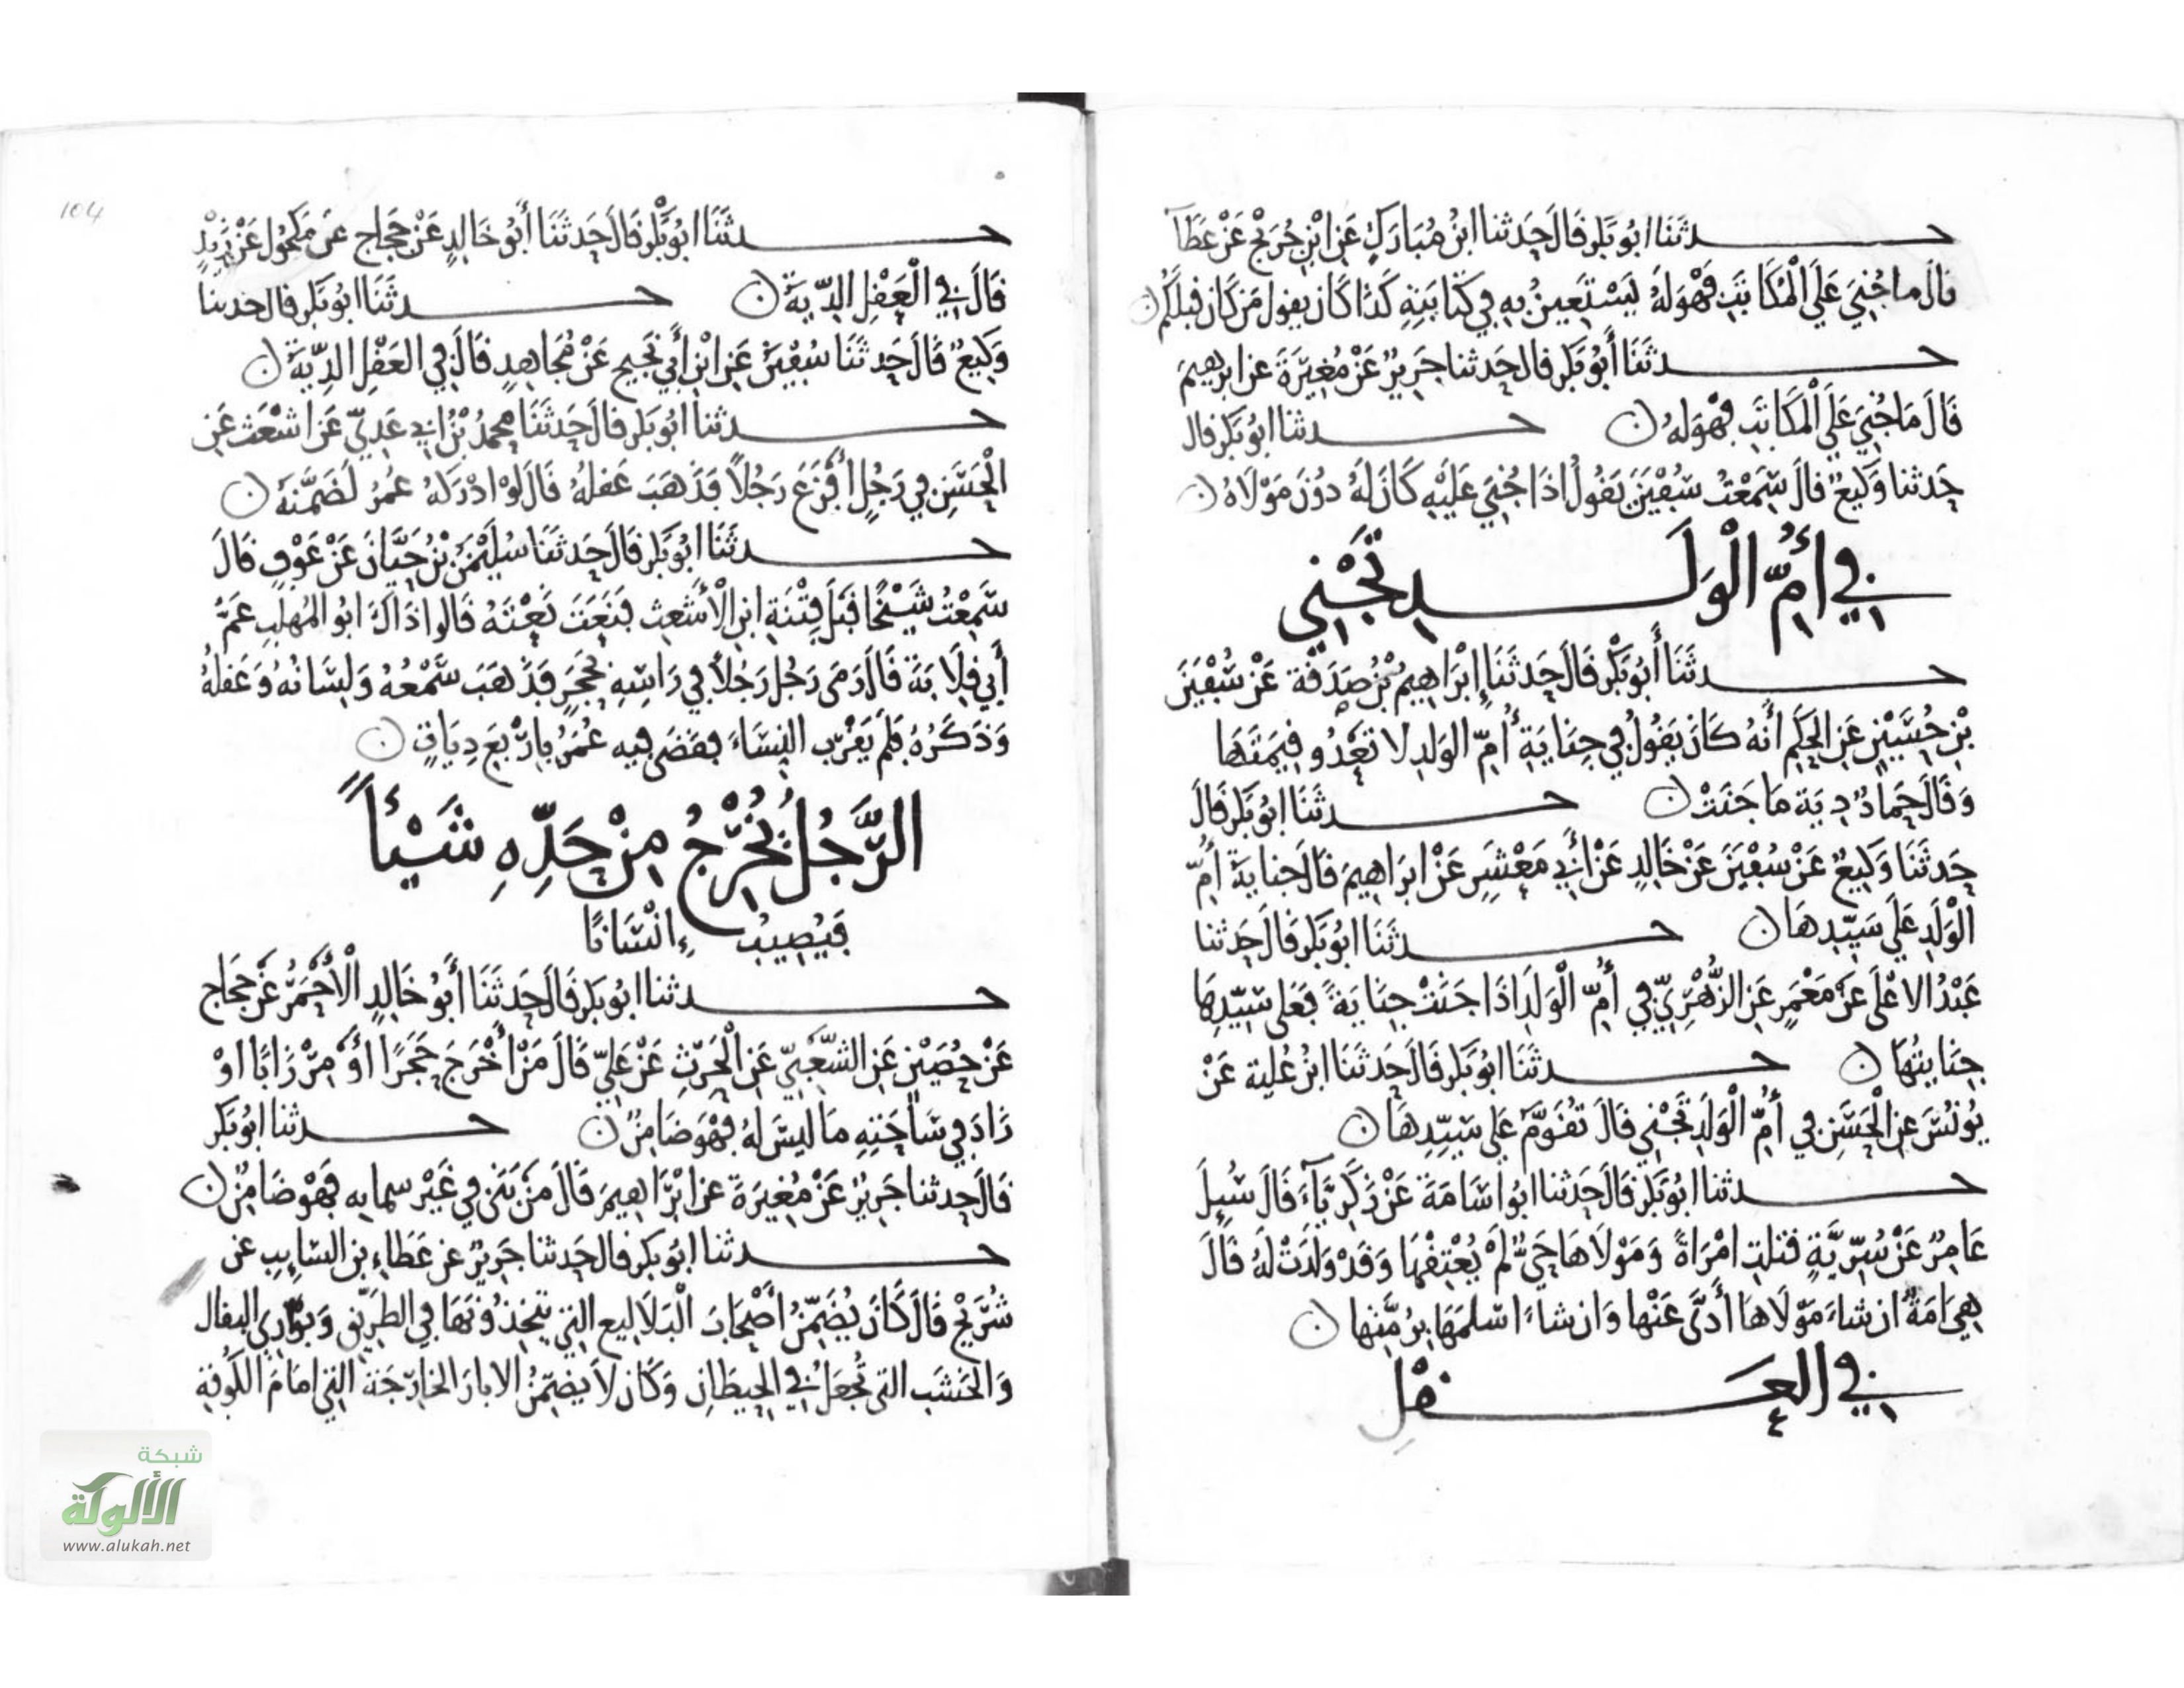 حدثنا ابو بكر قال حدثنا ابن مبارك عن ابن جريج عن عطاء
قال ما جني علي المكاتب فهو له يستعين به في كتابته كذا كان يقول من كان قبلكم
حدثنا أبو بكر قال حدثنا جرير عن مغيرة عن ابرهيم
قال ما جني علي المكاتب فهو له حدثنا ابو بكر قال
حدثنا وكيع قال سمعت سفين يقول اذا جني عليه كان له دون مولاه
في أم الولد تجني
حدثنا أبو بكر قال حدثنا إبراهيم بن صدقة عن سفين
بن حسين عن الحكم أنه كان يقول في جناية أم الولد لا تعدو قيمتها
وقال حماد دية ما جنت حدثنا ابو بكر قال
حدثنا وكيع عن سفين عن خالد عن أبي معشر عن ابراهيم قال جناية أم
الولد علي سيدها حدثنا ابو بكر قال حدثنا
عبد الاعلي عن معمر عن الزهري في أم الولد اذا جنت جناية فعلي سيدها
جنايتها حدثنا ابو بكر قال حدثنا ابن علية عن
يونس عن الحسن في أم الولد تجني قال تقوم علي سيدها
حدثنا ابو بكر قال حدثنا ابو اسامة عن زكرياء قال سيل
عامر عن سرية قتلت امراة ومولاها حي لم يعتقها وقد ولدت له قال
هي امة ان شاء مولاها أدى عنها وان شاء اسلمها برمتها
في العقل
104
حدثنا ابو بكر قال حدثنا أبو خالد عن حجاج عن مكحول عن زيد
قال في العقل الدية حدثنا ابو بكر قال حدثنا
وكيع قال حدثنا سفين عن ابن أبي نجيح عن مجاهد قال في العقل الدية
حدثنا ابو بكر قال حدثنا محمد بن ابي عدي عن اشعث عن
الحسن في رجل أفزع رجلا فذهب عقله قال لو ادركه عمر لضمنه
حدثنا ابو بكر قال حدثنا سليمن بن حيان عن عوف قال
سمعت شيخا قبل فتنة ابن الأشعث فنعت نعته قالوا ذاك ابو المهلب عم
أبي قلابة قال رمى رجل رجلا في راسه بحجر فذهب سمعه ولسانه وعقله
وذكره فلم يقرب النساء فقضى فيه عمر باربع ديات
الرجل يخرج من حده شيئا
فيصيب إنسانا
حدثنا ابو بكر قال حدثنا أبو خالد الأحمر عن حجاج
عن حصين عن الشعبي عن الحرث عن علي قال من أخرج حجرا أو مرزابا او
زاد في ساحته ما ليس له فهو ضامن حدثنا ابو بكر
قال حدثنا جرير عن مغيرة عن ابراهيم قال من بنى في غير سمايه فهو ضامن
حدثنا ابو بكر قال حدثنا جرير عن عطاء بن السايب عن
شريح قال كان يضمن أصحاب البلاليع التي يتخذونها في الطريق وبواري البقال
والخشب التي تجعل في الحيطان وكان لا يضمن الابار الخارجة التي امام الكوفة
شبكة
الألوكة
www.alukah.net